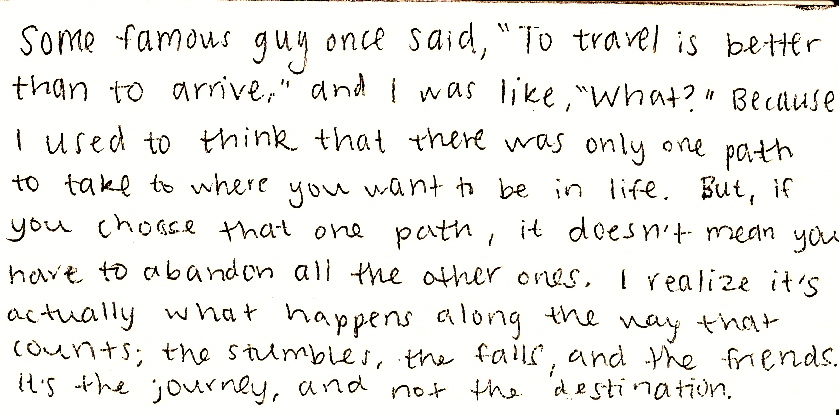 Some famous guy once said, "To travel is better
than to arrive," and I was like, "What?" Because
I used to think that there was only one path
to take to where you want to be in life. But, if
you choose that one path, it doesn't mean you
have to abandon all the other ones. I realize it's
actually what happens along the way that
counts; the stumbles, the falls, and the friends.
It's the journey, and not the destination.